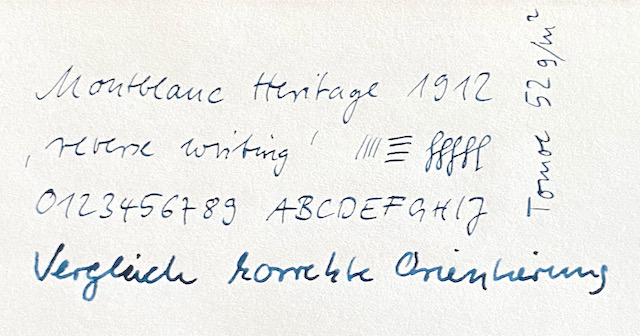 Montblanc Heritage 1912
‚reverse writing'
0123456789 ABCDEFGHIJ
Vergleich korrekte Orientierung
Tomoe 52 g/m²